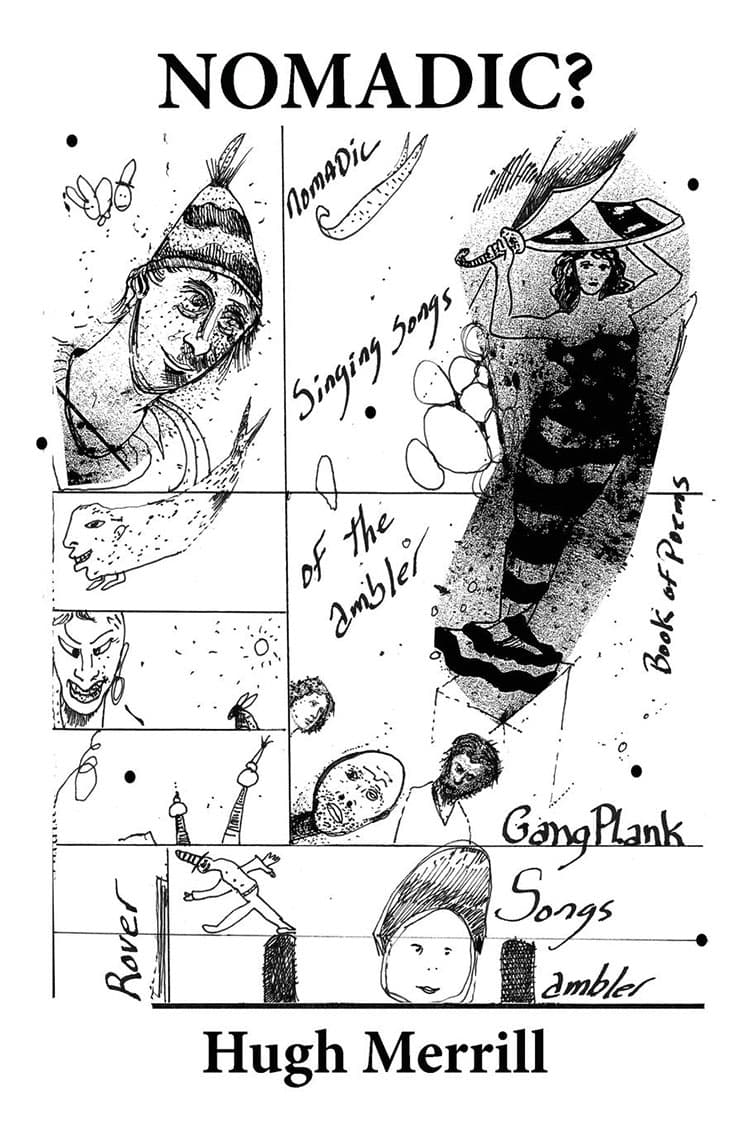 NOMADIC?
NOMADIC
Singing Songs
of the
ambler
Book of Poems
GangPlank
Songs
Rover
ambler
Hugh Merrill